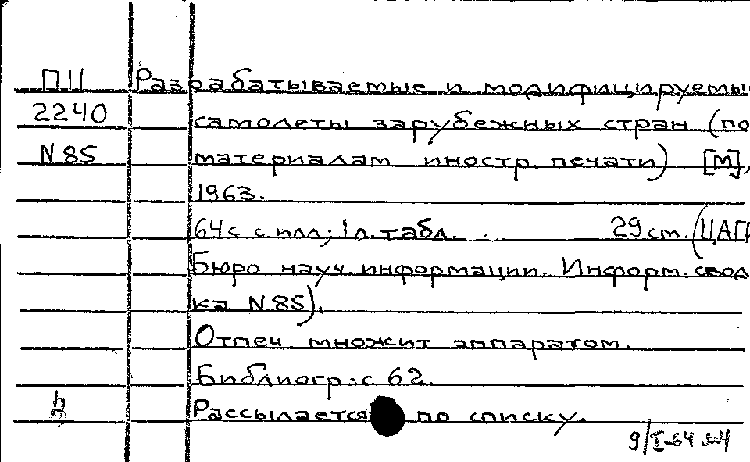 П11 Разрабатываемые и модифицируемы
2240 самолеты зарубежных стран (по
N85 материалам иностр. печати) [М],
1963.
64с с илл; 1л. табл. 29см. (ЦАГИ
Бюро науч. информации. Информ. свод
ка N85).
Отпеч. множит аппаратом.
Библиогр: с 62.
Рассылается по списку.
9/I-64